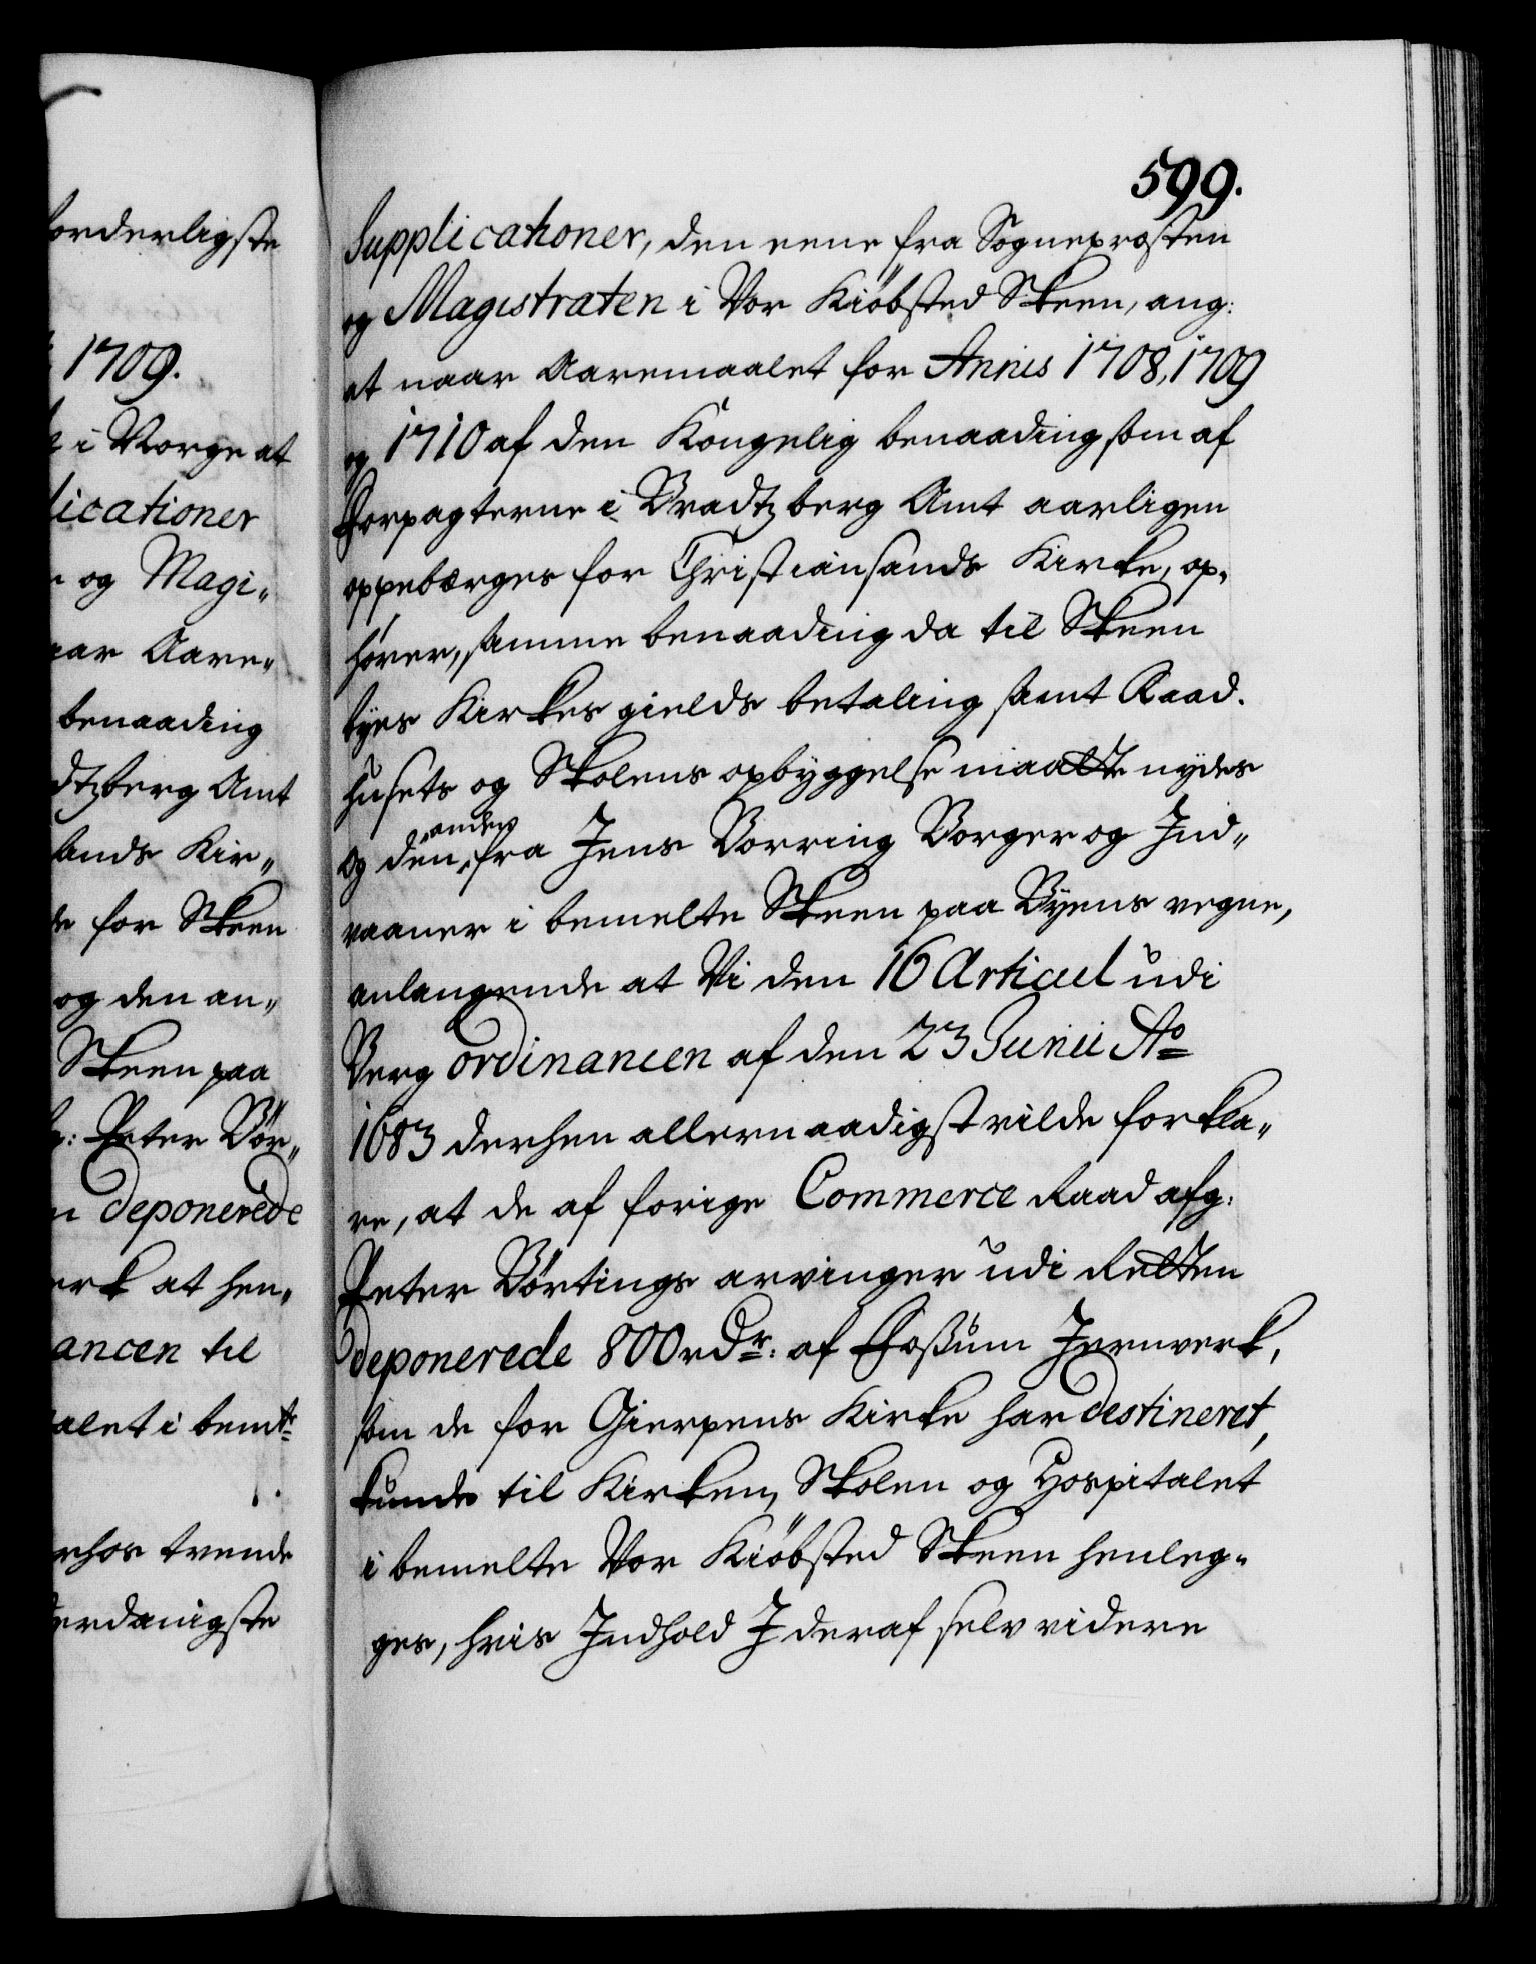 orderligste
1709.
i Norge at
licationer
og Magi„
aar Aare„
benaading
dtzberg Amt
sands Kir„
for Skeen
og den an„
Skeen paa
Peter Bör„
deponerede
erk at hen„
ancen til
alet i bemte
rhos trende
erdanigste
599.
Supplicationer, den eene fra Sogneprosten
og Magistraten i Vor Kiöbsted Skeen, ang:
at naar Aaremaalet for Annis 1708, 1709
og 1710 af den Kongelig benaading som af
Forpagterne i Bradtzberg Amt aarligen
oppebærges for Christiansands Kirke, op„
hörer, samme benaading da til Skeen
byes Kirkes gields betaling samt Raad„
husets og Skolens opbyggelse maatte nydes
og den anden fra Jens Borring Borger og Ind„
vaaner i bemelte Skeen paa Byens vegne,
anlangende at Vi den 16 Articul udi
Berg ordinancen af den 23 Junii Ao
1683 derhen allernaadigst vilde forkla„
re, at de af forige Commerce Raad afg:
Peter Börtings arvinger udi Retten
deponerede 800 rdr: af Fossum Jernverk,
som de for Gierpens Kirke har destineret,
kunde til Kirken, Skolen og Hospitalet
i bemelte Vor Kiöbsted Skeen henleg„
ges, hvis Indhold I deraf selv videre